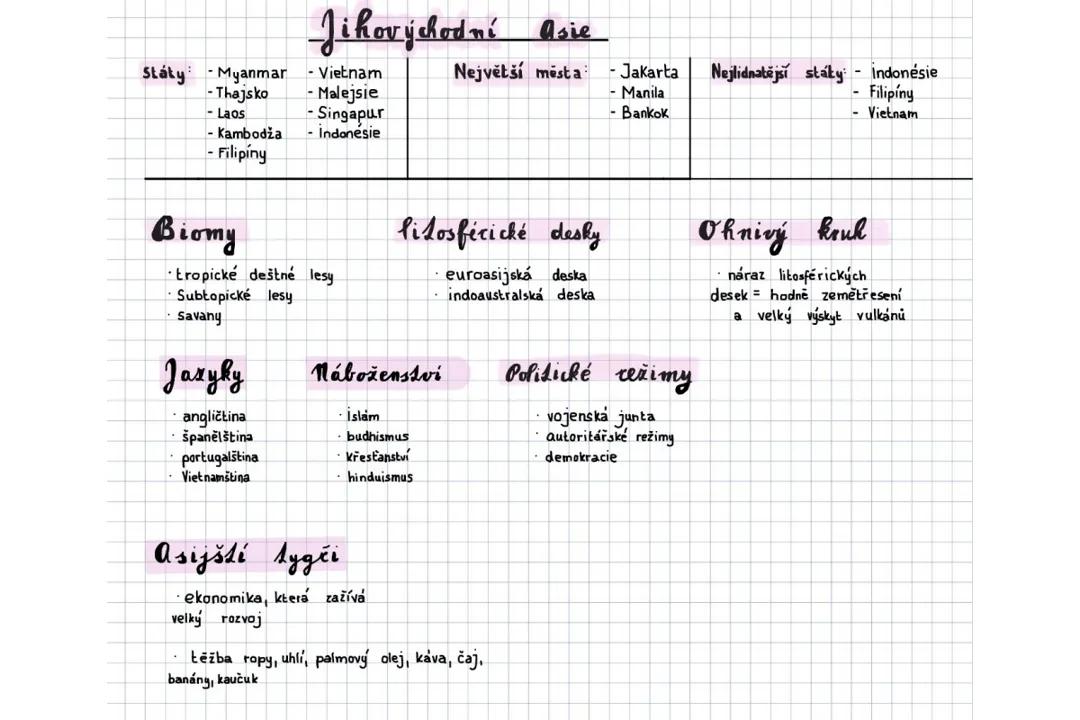 Jihovýchodní Asie
Státy:
- Myanmar
- Thajsko
- Laos
- Kambodža
- Filipíny
- Vietnam
- Malejsie
- Singapur
- indonésie
Největší města:
- Jakarta
- Manila
- Bankok
Nejlidnatější státy:
- indonésie
- Filipíny
- Vietnam
Biomy
· tropické deštné lesy
· Subtopické lesy
· savany
litosférické desky
· euroasijská deska
· indoaustralská deska
Ohnivý kruh
· náraz litosférických
desek = hodně zemětřesení
a velký výskyt vulkánů
Jazyky
· angličtina
· španělština
· portugalština
· Vietnamština
Náboženství
· islám
· budhismus
· křesťanství
· hinduismus
Politické režimy
· vojenská junta
· autoritářské režimy
· demokracie
Asijští tygři
· ekonomika, která zažívá
velký rozvoj
· těžba ropy, uhlí, palmový olej, káva, čaj,
banány, kaučuk